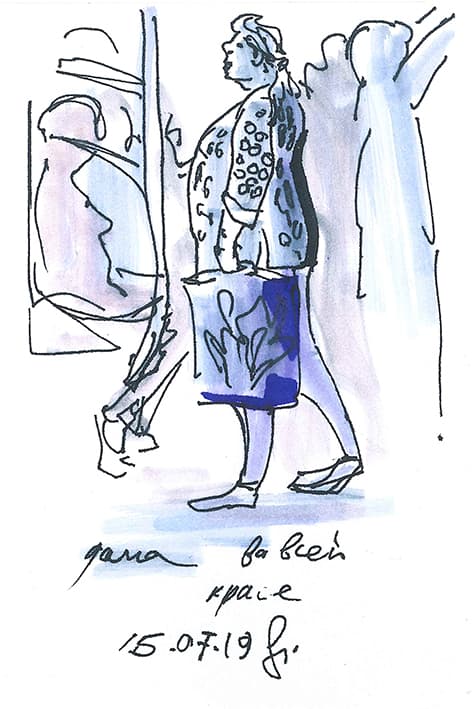 дама во всей
красе
15.07.19